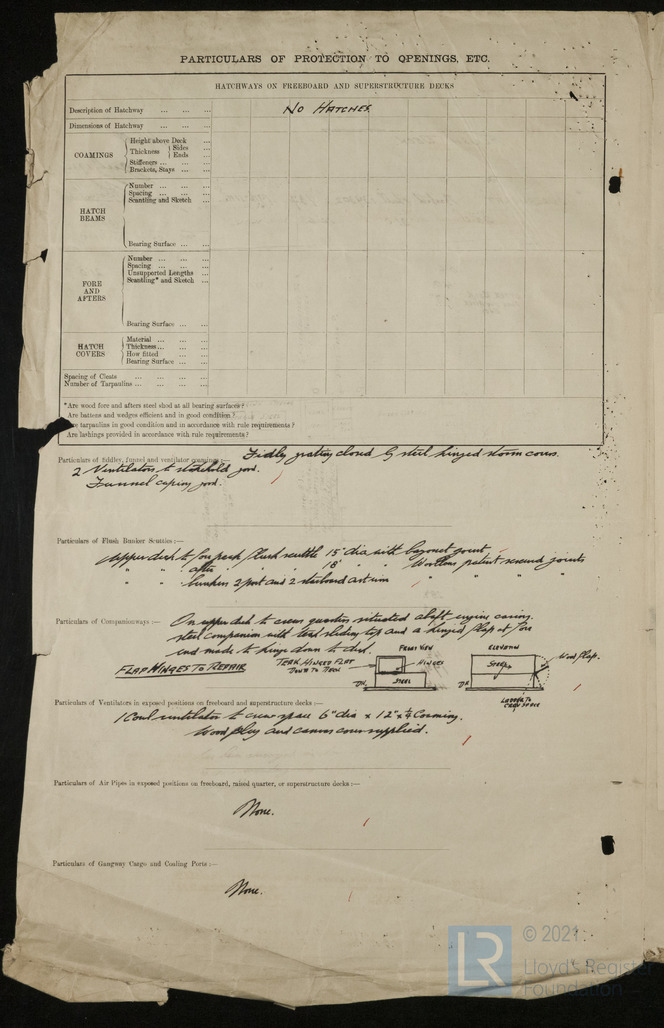 PARTICULARS OF PROTECTION TO OPENINGS, ETC.
HATCHWAYS ON FREEBOARD AND SUPERSTRUCTURE DECKS
Description of Hatchway ... ... ... NO HATCHES.
Dimensions of Hatchway ... ... ...
COAMINGS
Height above Deck ...
Thickness { Sides ...
Ends ...
Stiffeners ... ... ...
Brackets, Stays ... ...
HATCH BEAMS
Number ... ... ...
Spacing ... ... ...
Scantling and Sketch ...
Bearing Surface ... ...
FORE AND AFTERS
Number ... ... ...
Spacing ... ... ...
Unsupported Lengths ...
Scantling* and Sketch ...
Bearing Surface ... ...
HATCH COVERS
Material ... ... ...
Thickness ... ... ...
How fitted ... ...
Bearing Surface ... ...
Spacing of Cleats ... ... ... ...
Number of Tarpaulins ... ... ... ...
*Are wood fore and afters steel shod at all bearing surfaces?
Are battens and wedges efficient and in good condition?
tarpaulins in good condition and in accordance with rule requirements?
Are lashings provided in accordance with rule requirements?
Particulars of fiddley, funnel and ventilator coamings:— Fidley grating closed by steel hinged storm covers.
2 Ventilators to stokehold good.
Funnel casing good.
Particulars of Flush Bunker Scuttles:—
Upper deck to fore peak flush scuttle 15" dia with bayonet joint
" " " after " 18" " " patent screwed joints
" " " bunkers 2 port and 2 starboard " " " "
Particulars of Companionways:— On upper deck to crews quarters situated abaft engine casing.
steel companion with teak sliding top and a hinged flap at fore
end made to hinge down to deck.
FLAP HINGES TO REPAIR
TEAK HINGED FLAT
DOWN TO DECK
FRONT VIEW
HINGES
STEEL
DK
ELEVATION
STEEL
Wood flap.
DK
LADDER TO
CREW SPACE
Particulars of Ventilators in exposed positions on freeboard and superstructure decks:—
1 Cowl ventilator to crew space 6" dia x 12" x 1/4 Coaming.
Wood plug and canvas cover supplied.
Particulars of Air Pipes in exposed positions on freeboard, raised quarter, or superstructure decks:—
None.
Particulars of Gangway Cargo and Coaling Ports:—
None.
LR
© 2021
Lloyd's Register
Foundation